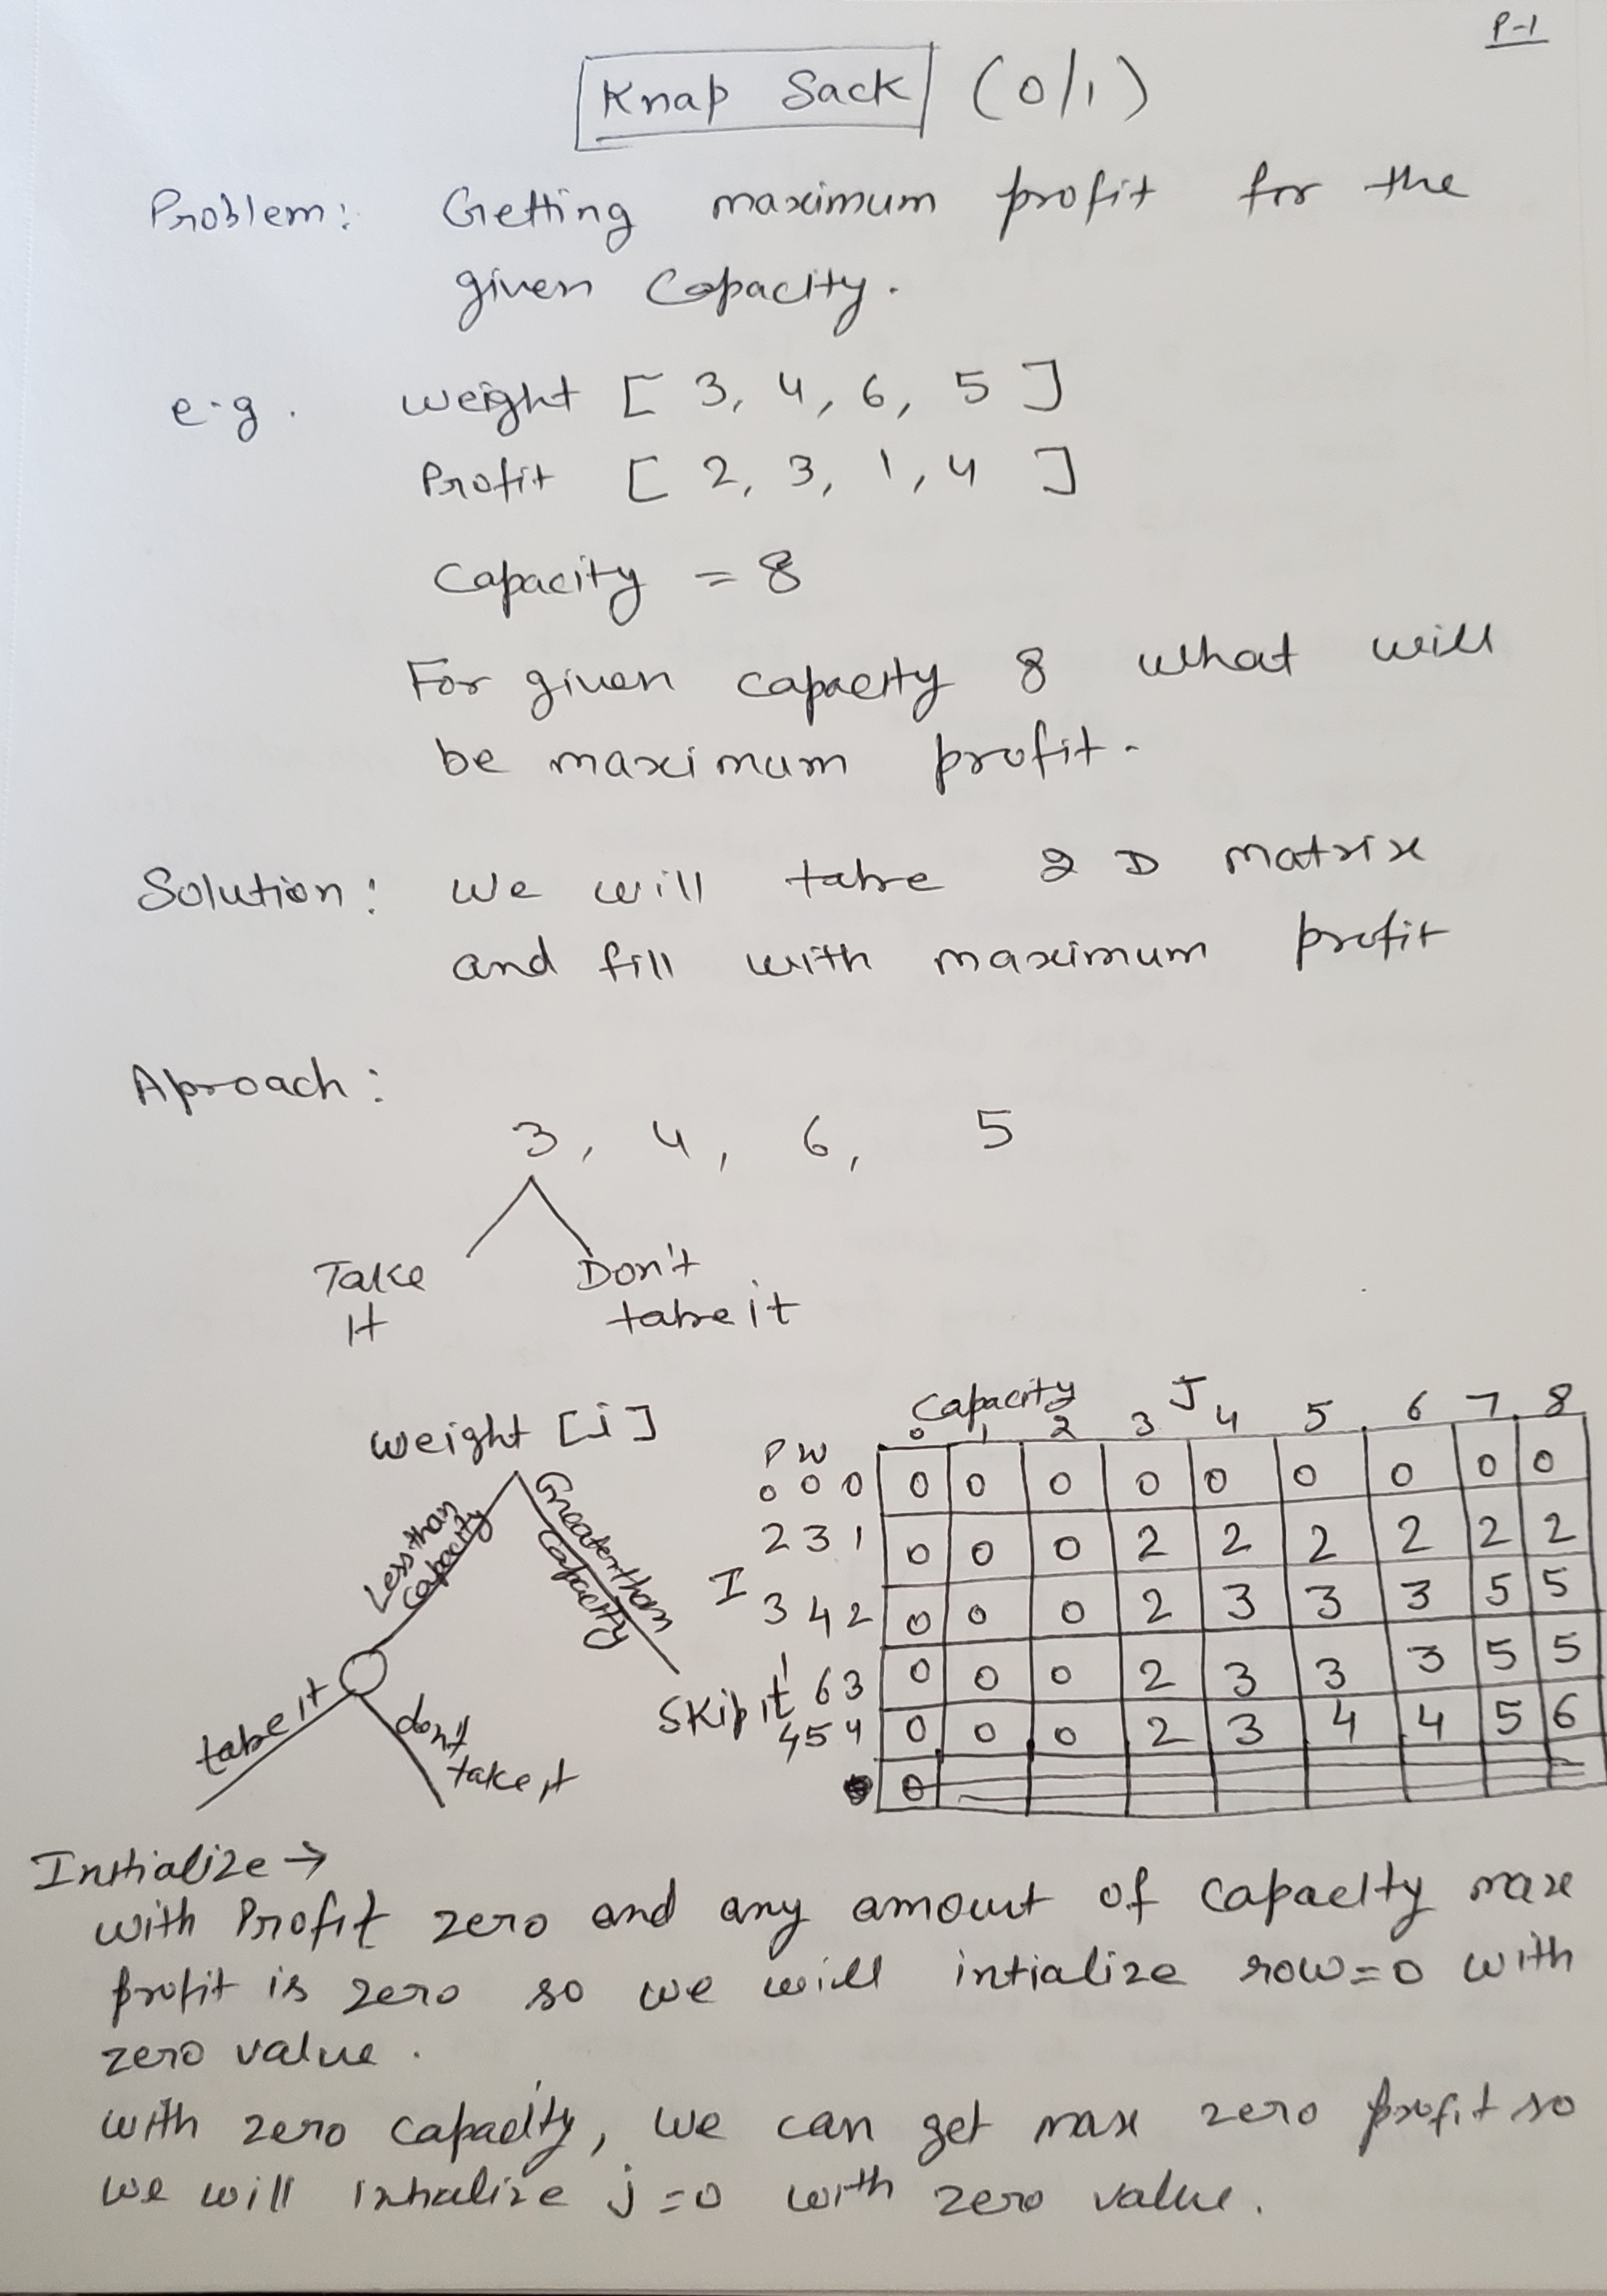 P-1
Knap Sack (0/1)
Problem: Getting maximum profit for the
given Capacity.
e.g. weight [ 3, 4, 6, 5 ]
Profit [ 2, 3, 1, 4 ]
Capacity = 8
For given capacity 8 what will
be maximum profit.
Solution: We will take 2 D matrix
and fill with maximum profit
Aproach:
3, 4, 6, 5
Take Don't
It take it
Weight [i]
Less than capacity
Greater than capacity
take it
don't take it
Skip it
Capacity J
0 1 2 3 4 5 6 7 8
P W
0 0 0 0 0 0 0 0 0 0 0 0
2 3 1 0 0 0 2 2 2 2 2 2
I
3 4 2 0 0 0 2 3 3 3 5 5
1 6 3 0 0 0 2 3 3 3 5 5
4 5 4 0 0 0 2 3 4 4 5 6
0
Initialize →
with Profit zero and any amount of capacity max
profit is zero so we will intialize row=0 with
zero value.
with zero capacity, we can get max zero profit so
we will intialize j=0 with zero value.